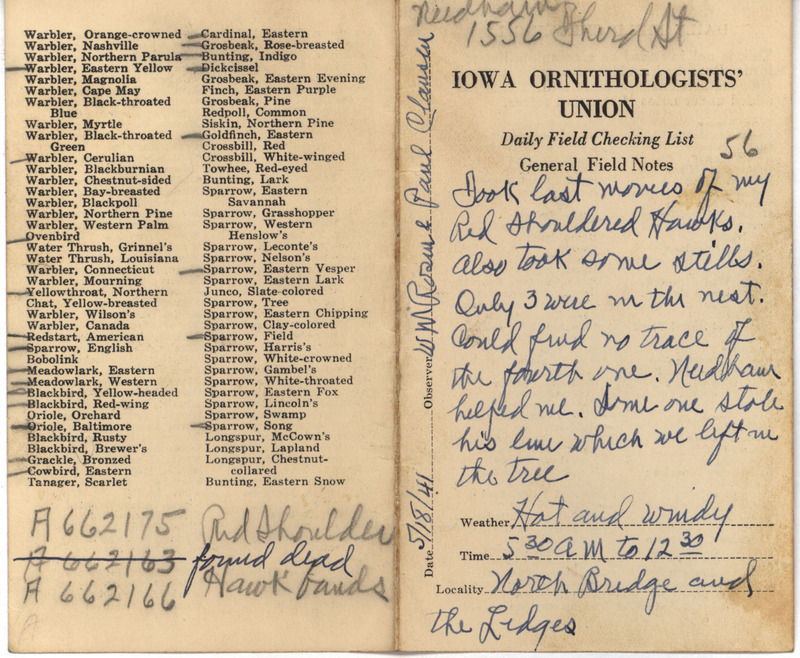 Warbler, Orange-crowned
Warbler, Nashville
Warbler, Northern Parula
Warbler, Eastern Yellow
Warbler, Magnolia
Warbler, Cape May
Warbler, Black-throated
Blue
Warbler, Myrtle
Warbler, Black-throated
Green
Warbler, Cerulian
Warbler, Blackburnian
Warbler, Chestnut-sided
Warbler, Bay-breasted
Warbler, Blackpoll
Warbler, Northern Pine
Warbler, Western Palm
Ovenbird
Water Thrush, Grinnel's
Water Thrush, Louisiana
Warbler, Connecticut
Warbler, Mourning
Yellowthroat, Northern
Chat, Yellow-breasted
Warbler, Wilson's
Warbler, Canada
Redstart, American
Sparrow, English
Bobolink
Meadowlark, Eastern
Meadowlark, Western
Blackbird, Yellow-headed
Blackbird, Red-wing
Oriole, Orchard
Oriole, Baltimore
Blackbird, Rusty
Blackbird, Brewer's
Grackle, Bronzed
Cowbird, Eastern
Tanager, Scarlet
Cardinal, Eastern
Grosbeak, Rose-breasted
Bunting, Indigo
Dickcissel
Grosbeak, Eastern Evening
Finch, Eastern Purple
Grosbeak, Pine
Redpoll, Common
Siskin, Northern Pine
Goldfinch, Eastern
Crossbill, Red
Crossbill, White-winged
Towhee, Red-eyed
Bunting, Lark
Sparrow, Eastern
Savannah
Sparrow, Grasshopper
Sparrow, Western
Henslow's
Sparrow, Leconte's
Sparrow, Nelson's
Sparrow, Eastern Vesper
Sparrow, Eastern Lark
Junco, Slate-colored
Sparrow, Tree
Sparrow, Eastern Chipping
Sparrow, Clay-colored
Sparrow, Field
Sparrow, Harris's
Sparrow, White-crowned
Sparrow, Gambel's
Sparrow, White-throated
Sparrow, Eastern Fox
Sparrow, Lincoln's
Sparrow, Swamp
Sparrow, Song
Longspur, McCown's
Longspur, Lapland
Longspur, Chestnut-
collared
Bunting, Eastern Snow
A 662175 Red Shoulder
A 662163 found dead
A 662166 Hawk bands
A
Date 5/18/41 Observer WM Rosene & Paul Claussen
Needham
1556 Third St
IOWA ORNITHOLOGISTS'
UNION
Daily Field Checking List
General Field Notes 56
Took last movies of my
Red Shouldered Hawks.
Also took some stills.
Only 3 were in the nest.
Could find no trace of
the fourth one. Needham
helped me. Some one stole
his line which we left in
the tree
Weather Hot and windy
Time 5 30 AM to 12 30
Locality North Bridge and
the Ledges